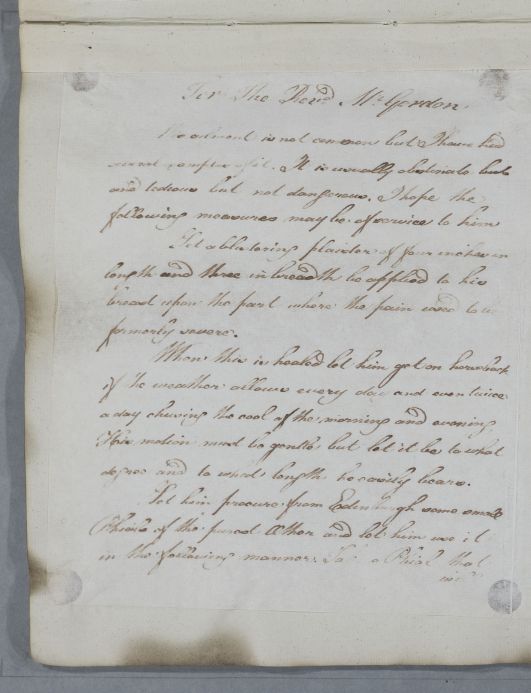 For The Revd. Mr. Gordon.
ailment is not common but I have had
several examples of it. It is usually obstinate
and tedious but not dangerous. I hope the
following measures may be of service to him
Let a blistering plaister of four inches in
length and three in breadth be applied to his
breast upon the part where the pain used to be
formerly severe.
When this is healed let him get on horseback
if the weather allows every day and even twice
a day chusing the cool of the morning and evening.
His motion must be gentle but let it be to what
degree and to what length he easily bears.
Let him procure from Edinburgh some small
Phials of the purest Æther and let him use it
in the following manner. a Phial that